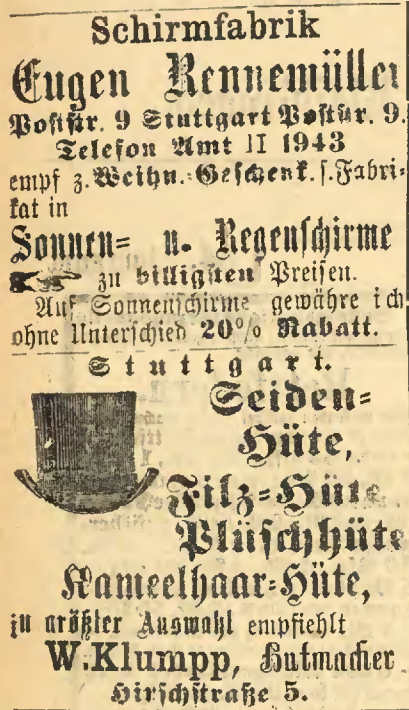 Schirmfabrik
Eugen Rennemüller
Poststr. 9 Stuttgart Poststr. 9.
Telefon Amt II 1943
empf z. Weihn.-Geschenk. s. Fabri-
kat in
Sonnen- u. Regenschirme
zu billigsten Preisen.
Auf Sonnenschirme gewähre ich
ohne Unterschied 20% Rabatt.
Stuttgart.
Seiden-
Hüte,
Filz-Hüte
Plüschhüte
Kameelhaar-Hüte,
in größter Auswahl empfiehlt
W. Klumpp, Hutmacher
Hirschstraße 5.